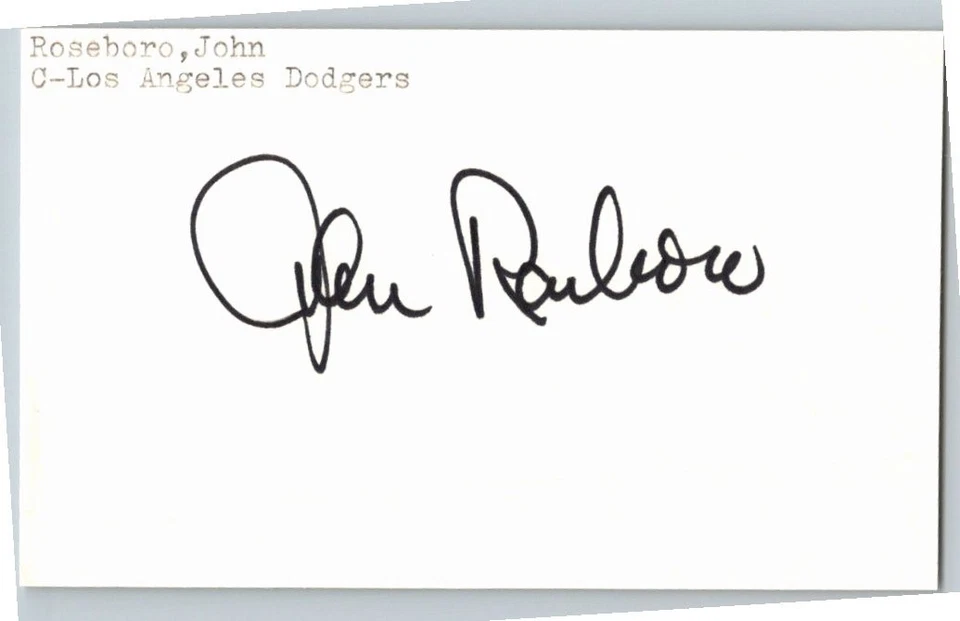 Roseboro,John
C-Los Angeles Dodgers
John Roseboro